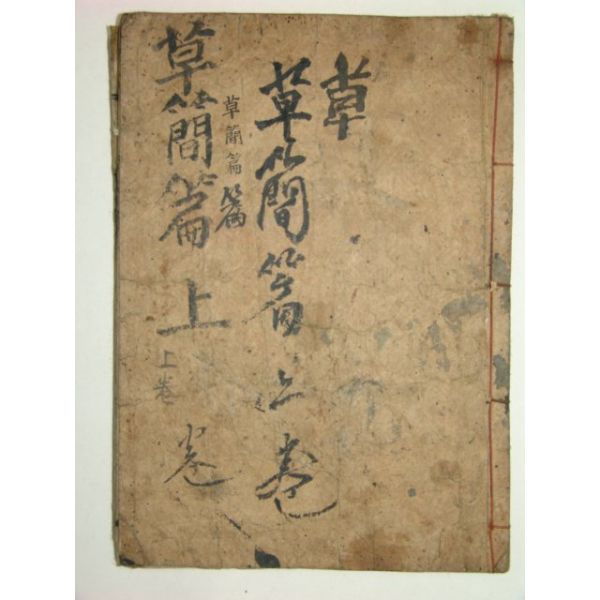 草
草簡篇上卷
草簡篇篇
草簡篇上卷
上卷